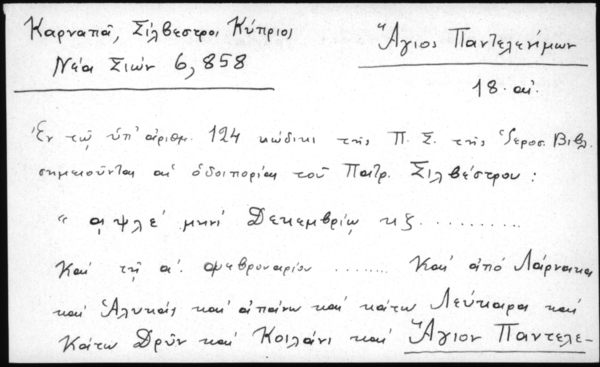 Καρναπᾶ, Σίλβεστροι Κύπριοι
Νέα Σιών 6, 858
Ἅγιος Παντελεήμων
18. αἰ.
Ἐν τῷ ὑπ' ἀριθμ. 124 κώδικι τῆς Π. Σ. τῆς Ἱεροσ. Βιβλ.
σημειοῦνται αἱ ὁδοιπορίαι τοῦ Πατρ. Σιλβέστρου :
" αψλε' μηνί Δεκεμβρίῳ κζ . . . . . . . . .
Καί τῇ α'. φεβρουαρίου . . . . . . . Καί ἀπό Λάρνακα
καί Ἁλυκάς καί ἀπάνω καί κάτω Λεύκαρα καί
Κάτω Δρῦν καί Κοιλάνι καί Ἅγιον Παντελε-